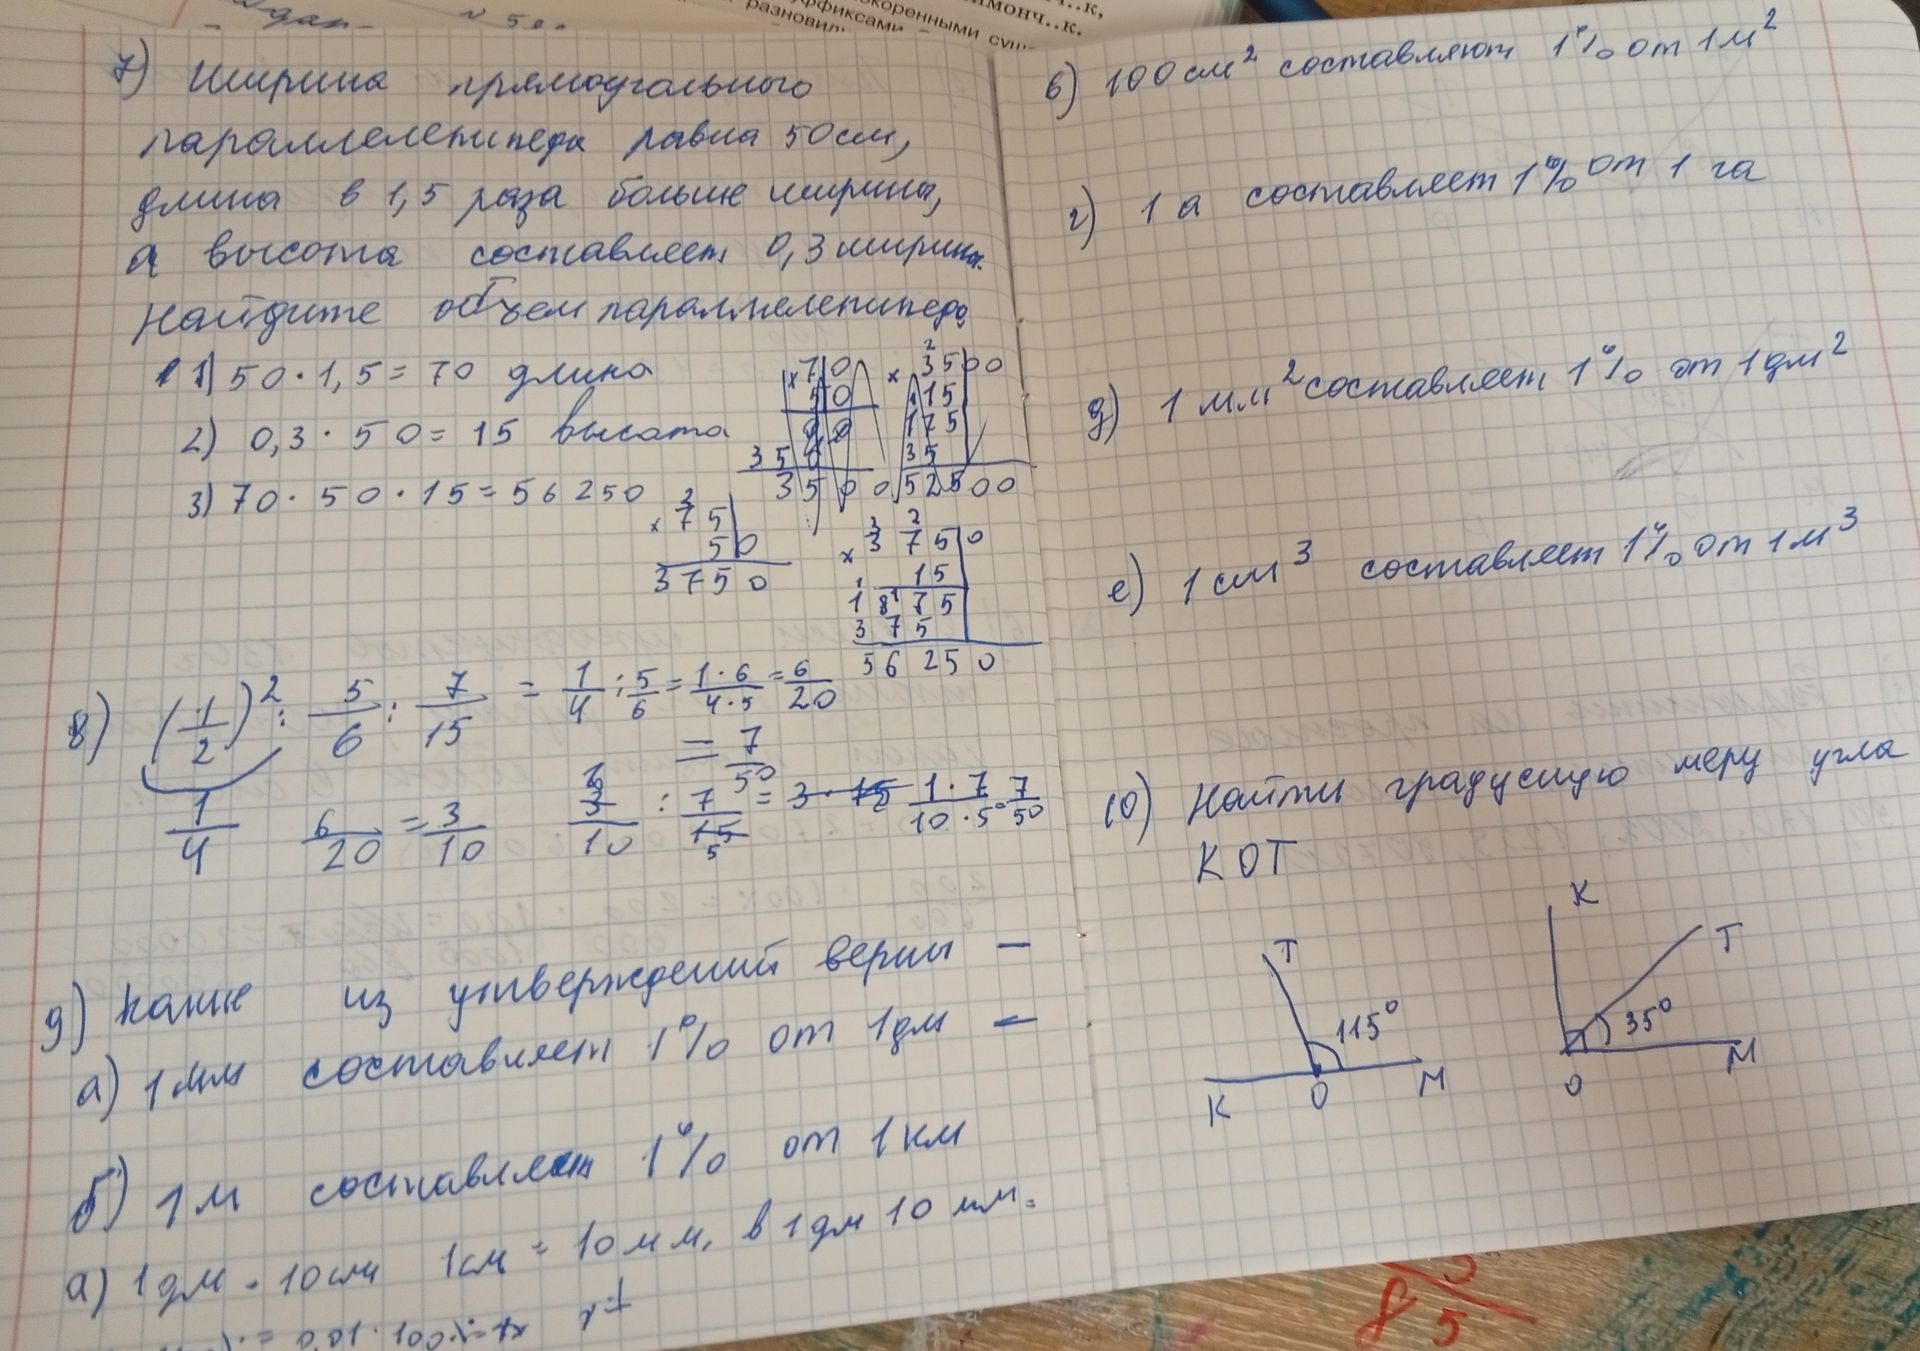 коренными
суффиксами
разновид
имонч..к,
ч..к.
7) Ширина прямоугольного
параллелепипеда равна 50см,
длина в 1,5 раза больше ширины,
а высота составляет 0,3 ширины.
Найдите объем параллелепипеда
1) 50 · 1,5 = 70 длина
2) 0,3 · 50 = 15 высота
3) 70 · 50 · 15 = 56 250
× 70
50
00
350
3500
× 3500
15
175
35
52500
× 75
50
3750
× 3750
15
1875
375
56250
8) (1/2)² : 5/6 : 7/15 = 1/4 : 5/6 = 1·6/4·5 = 6/20
= 7/50
1/4 6/20 = 3/10 3/10 : 7/15 = 3·15 1·7/10·5 = 7/50
9) какие из утверждений верны –
а) 1мм составляет 1% от 1дм –
б) 1м составляет 1% от 1км
а) 1дм = 10см 1см = 10мм, в 1дм 10 мм.
= 0,01 · 100
в) 100см² составляют 1% от 1м²
г) 1 а составляет 1% от 1 га
д) 1 мм² составляет 1% от 1дм²
е) 1см³ составляет 1% от 1м³
10) Найти градусную меру угла
КОТ
Т
115°
К О М
К
Т
35°
О М
8 5